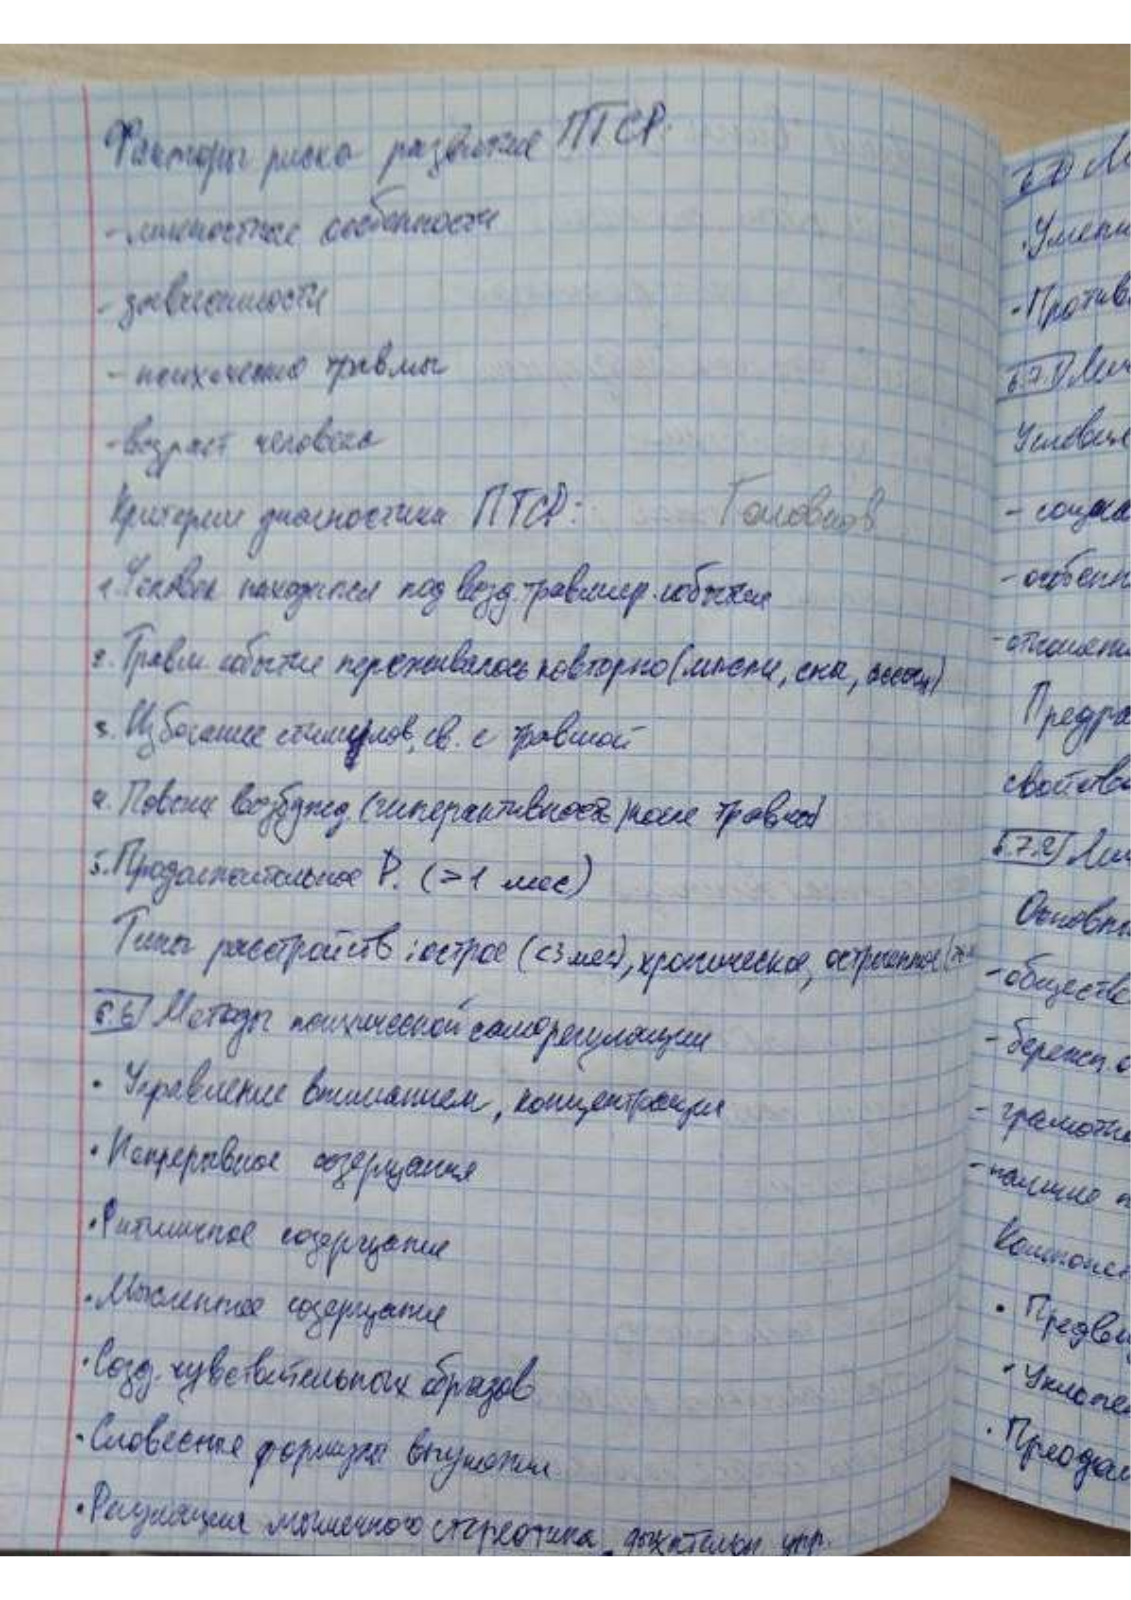 Факторы риска развития ПТСР:
- личностные особенности
- зависимости
- психические травмы
- возраст человека
Критерии диагностики ПТСР: Головков
1. Человек находился под возд. травмир. события
2. Травм. событие переживалось повторно (мысли, сны, ассоц)
3. Избегание стимулов, св. с травмой
4. Повыш возбужд. (гиперактивность) после травмы
5. Продолжительное Р. (>1 мес)
Типы расстройств: острое (<3 мес), хроническое, отсроченное
6.6 Методы психической саморегуляции
• Управление вниманием, концентрация
• Непрерывное созерцание
• Ритмичное созерцание
• Мысленное созерцание
• Созд. чувствительных образов
• Словесные формулы внушения
• Регуляция мышечного стереотипа, дыхательн. упр.
• Умень
- Против
6.7.1
Условия
- социа
- особенн
- отношени
Предра
свойства
6.7.2
Основн
- обществе
- бережн. о
- грамотно
- наличие п
Компонен
• Предви
• Уклоне
• Преодол